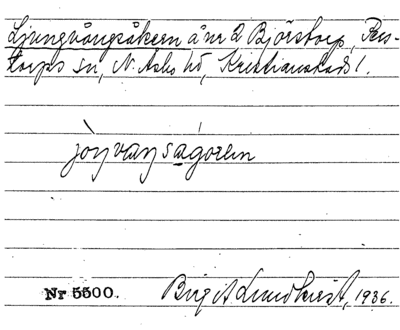 Ljungvångsåkern å nr 2 Björstorp, Pers-
torps sn, N. Åsbo hd, Kristianstads l.
Nr 5500. Birgit Lundkvist, 1936.